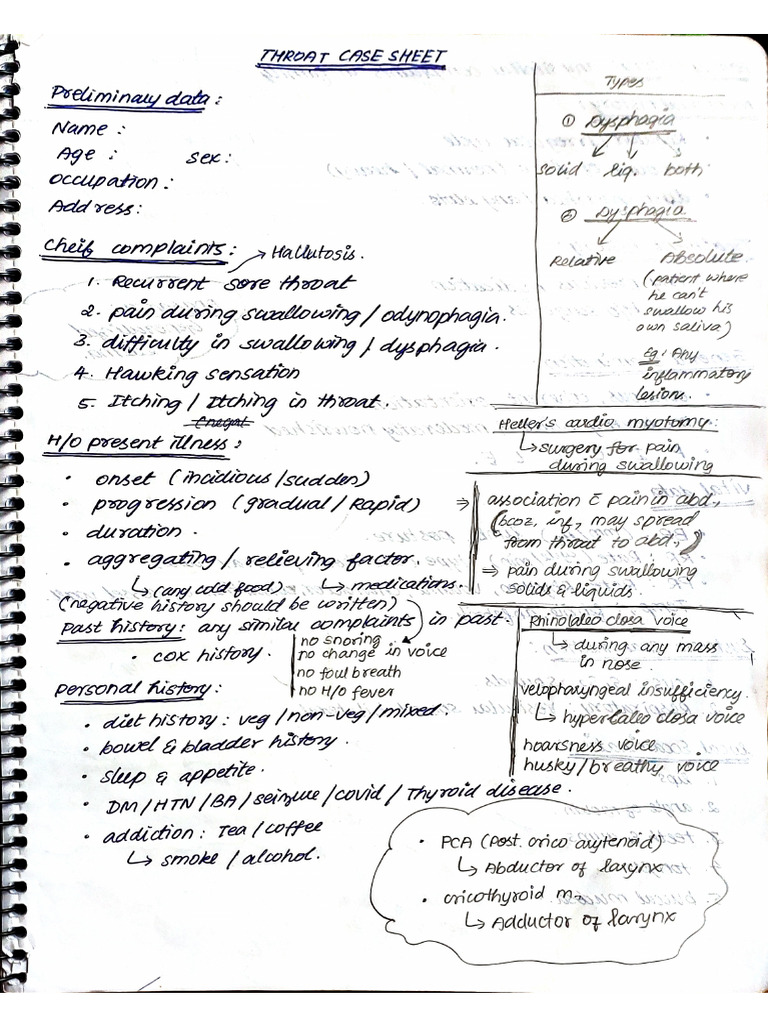 THROAT CASE SHEET
Preliminary data :
Name :
Age : sex :
Occupation :
Address :
Cheif complaints : → Hallutosis.
1. Recurrent sore throat
2. pain during swallowing / odynophagia.
3. difficulty in swallowing / dysphagia.
4. Hawking sensation
5. Itching / Itching in throat.
H/o present illness :
• onset (incidious/sudden)
• progression (gradual / Rapid)
• duration.
• aggregating / relieving factor.
↳ (any cold food) ↳ medications.
(negative history should be written)
Past history : any similar complaints in past
• cox history.
no snoring
no change in voice
no foul breath
no H/o fever
personal history :
• diet history : veg / non-veg / mixed.
• bowel & bladder history.
• sleep & appetite.
• DM / HTN / BA / seizure / covid / Thyroid disease.
• addiction : Tea / coffee
↳ smoke / alcohol.
Types
① Dysphagia
solid liq. both
② Dysphagia
Relative Absolute
(patient where
he can't
swallow his
own saliva)
Eg: Any
inflammatory
lesions.
Heller's cardio myotomy:
↳ surgery for pain
during swallowing
⇒ association c̄ pain in abd,
(bcoz, inf, may spread
from throat to abd,)
⇒ pain during swallowing
solids & liquids.
Rhinolaleo closa voice
↳ during any mass
in nose.
velopharyngeal insufficiency.
↳ hyperlaleo closa voice
hoarsness voice
husky / breathy voice
• PCA (Post. crico arytenoid)
↳ Abductor of larynx
• cricothyroid m,
↳ Adductor of larynx